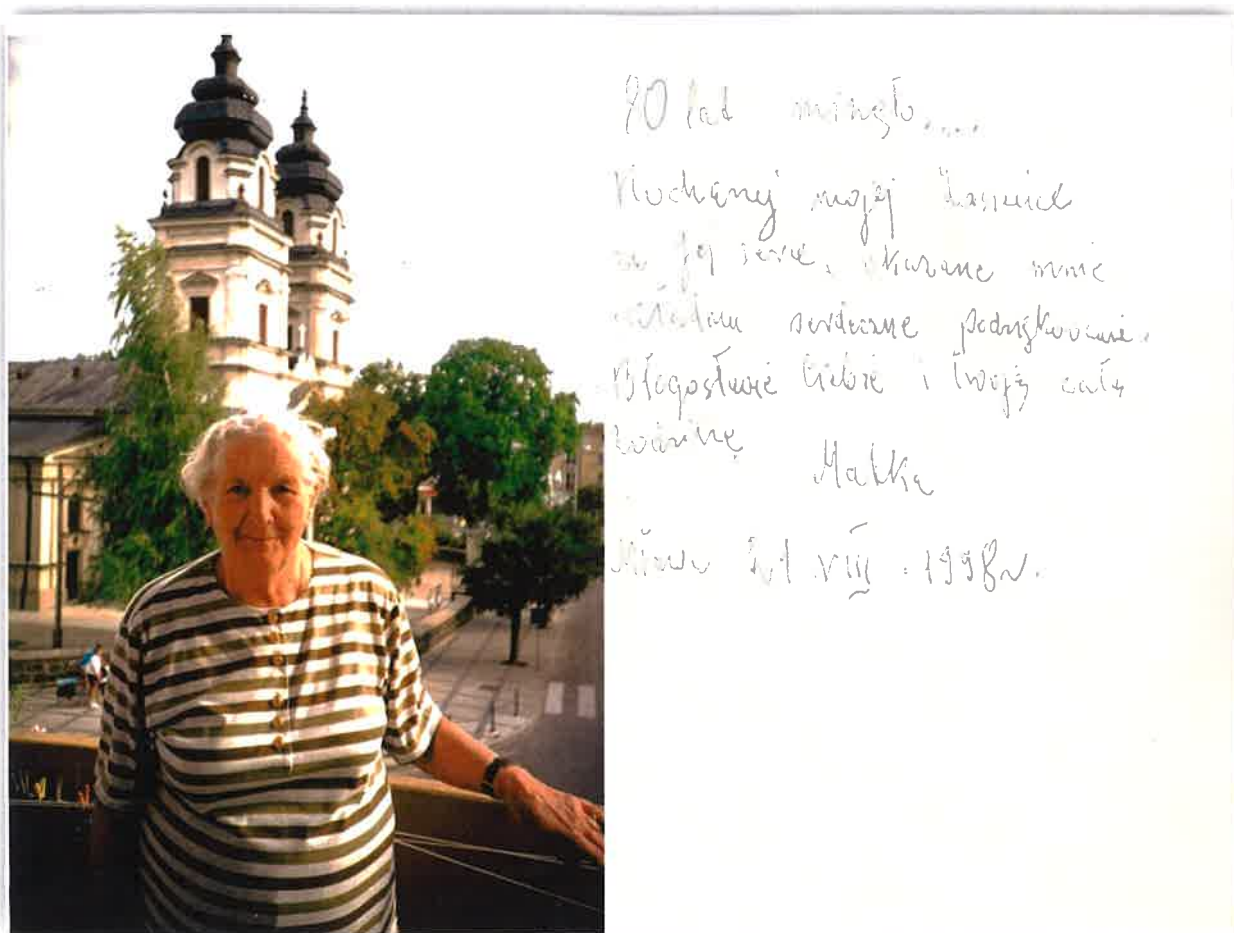 90 lat minęło....
Kochanej mojej
serce, okazane mnie
składam serdeczne podziękowanie.
Błogosławię Ciebie i twoją całą
rodzinę
Matka
Mława 21 VIII. 1998 r.